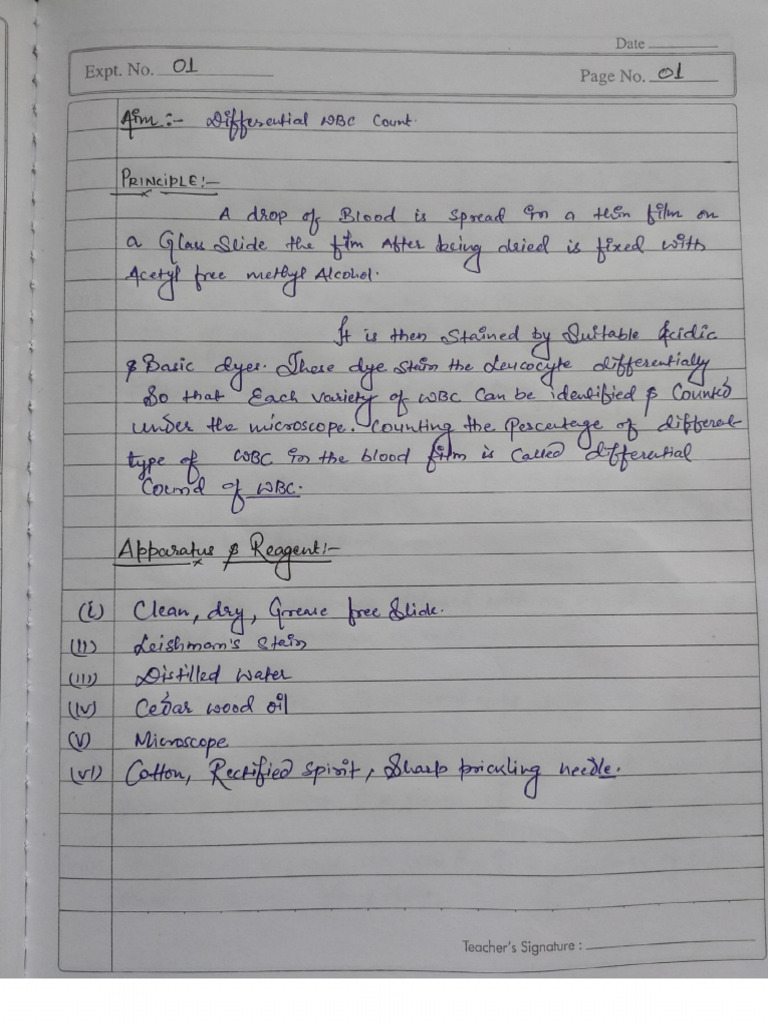 Date
Expt. No. 01
Page No. 01
Aim :- Differential WBC Count.
PRINCIPLE :-
A drop of Blood is spread in a thin film on
a Glass Slide the film After being dried is fixed with
Acetyl free methyl Alcohol.
It is then stained by Suitable Acidic
& Basic dyes. These dye stain the Leucocyte differentially
So that Each variety of WBC can be identified & Counted
under the microscope. Counting the Percentage of different
type of WBC in the blood film is Called differential
Cound of WBC.
Apparatus & Reagent :-
(i) Clean, dry, Grease free Slide.
(ii) Leishman's Stain
(iii) Distilled water
(iv) Cedar wood oil
(v) Microscope
(vi) Cotton, Rectified spirit, Sharp prickling needle.
Teacher's Signature :